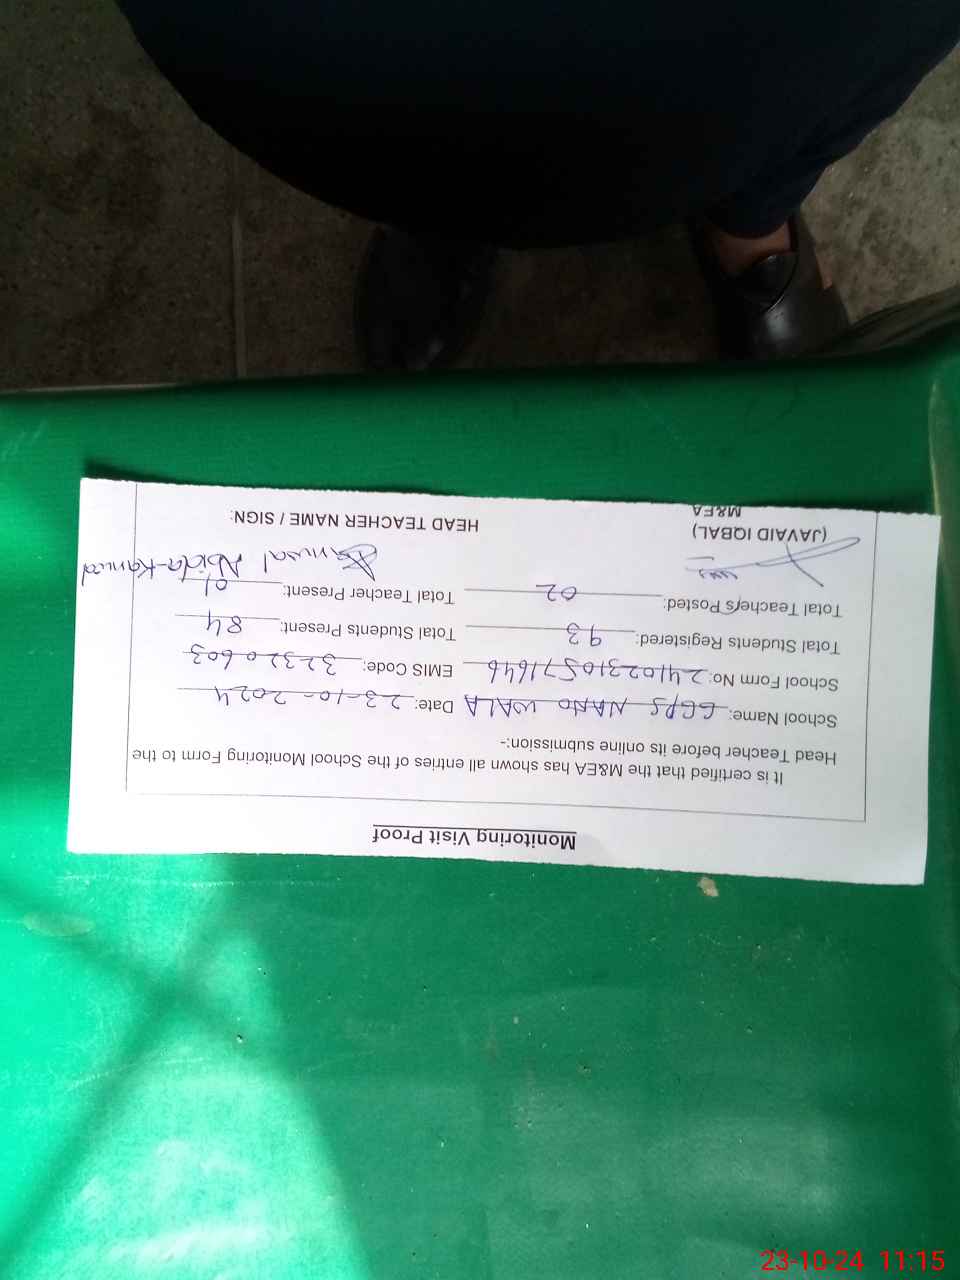 Monitoring Visit Proof
It is certified that the M&EA has shown all entries of the School Monitoring Form to the
Head Teacher before its online submission:-
School Name: GGPS NANO WALA Date: 23-10-2024
School Form No: 24102310571646 EMIS Code: 32320603
Total Students Registered: 93 Total Students Present: 84
Total Teachers Posted: 02 Total Teacher Present: 01
Kanwal Abida-Kanwal
(JAVAID IQBAL) HEAD TEACHER NAME / SIGN:
M&EA
23-10-24 11:15